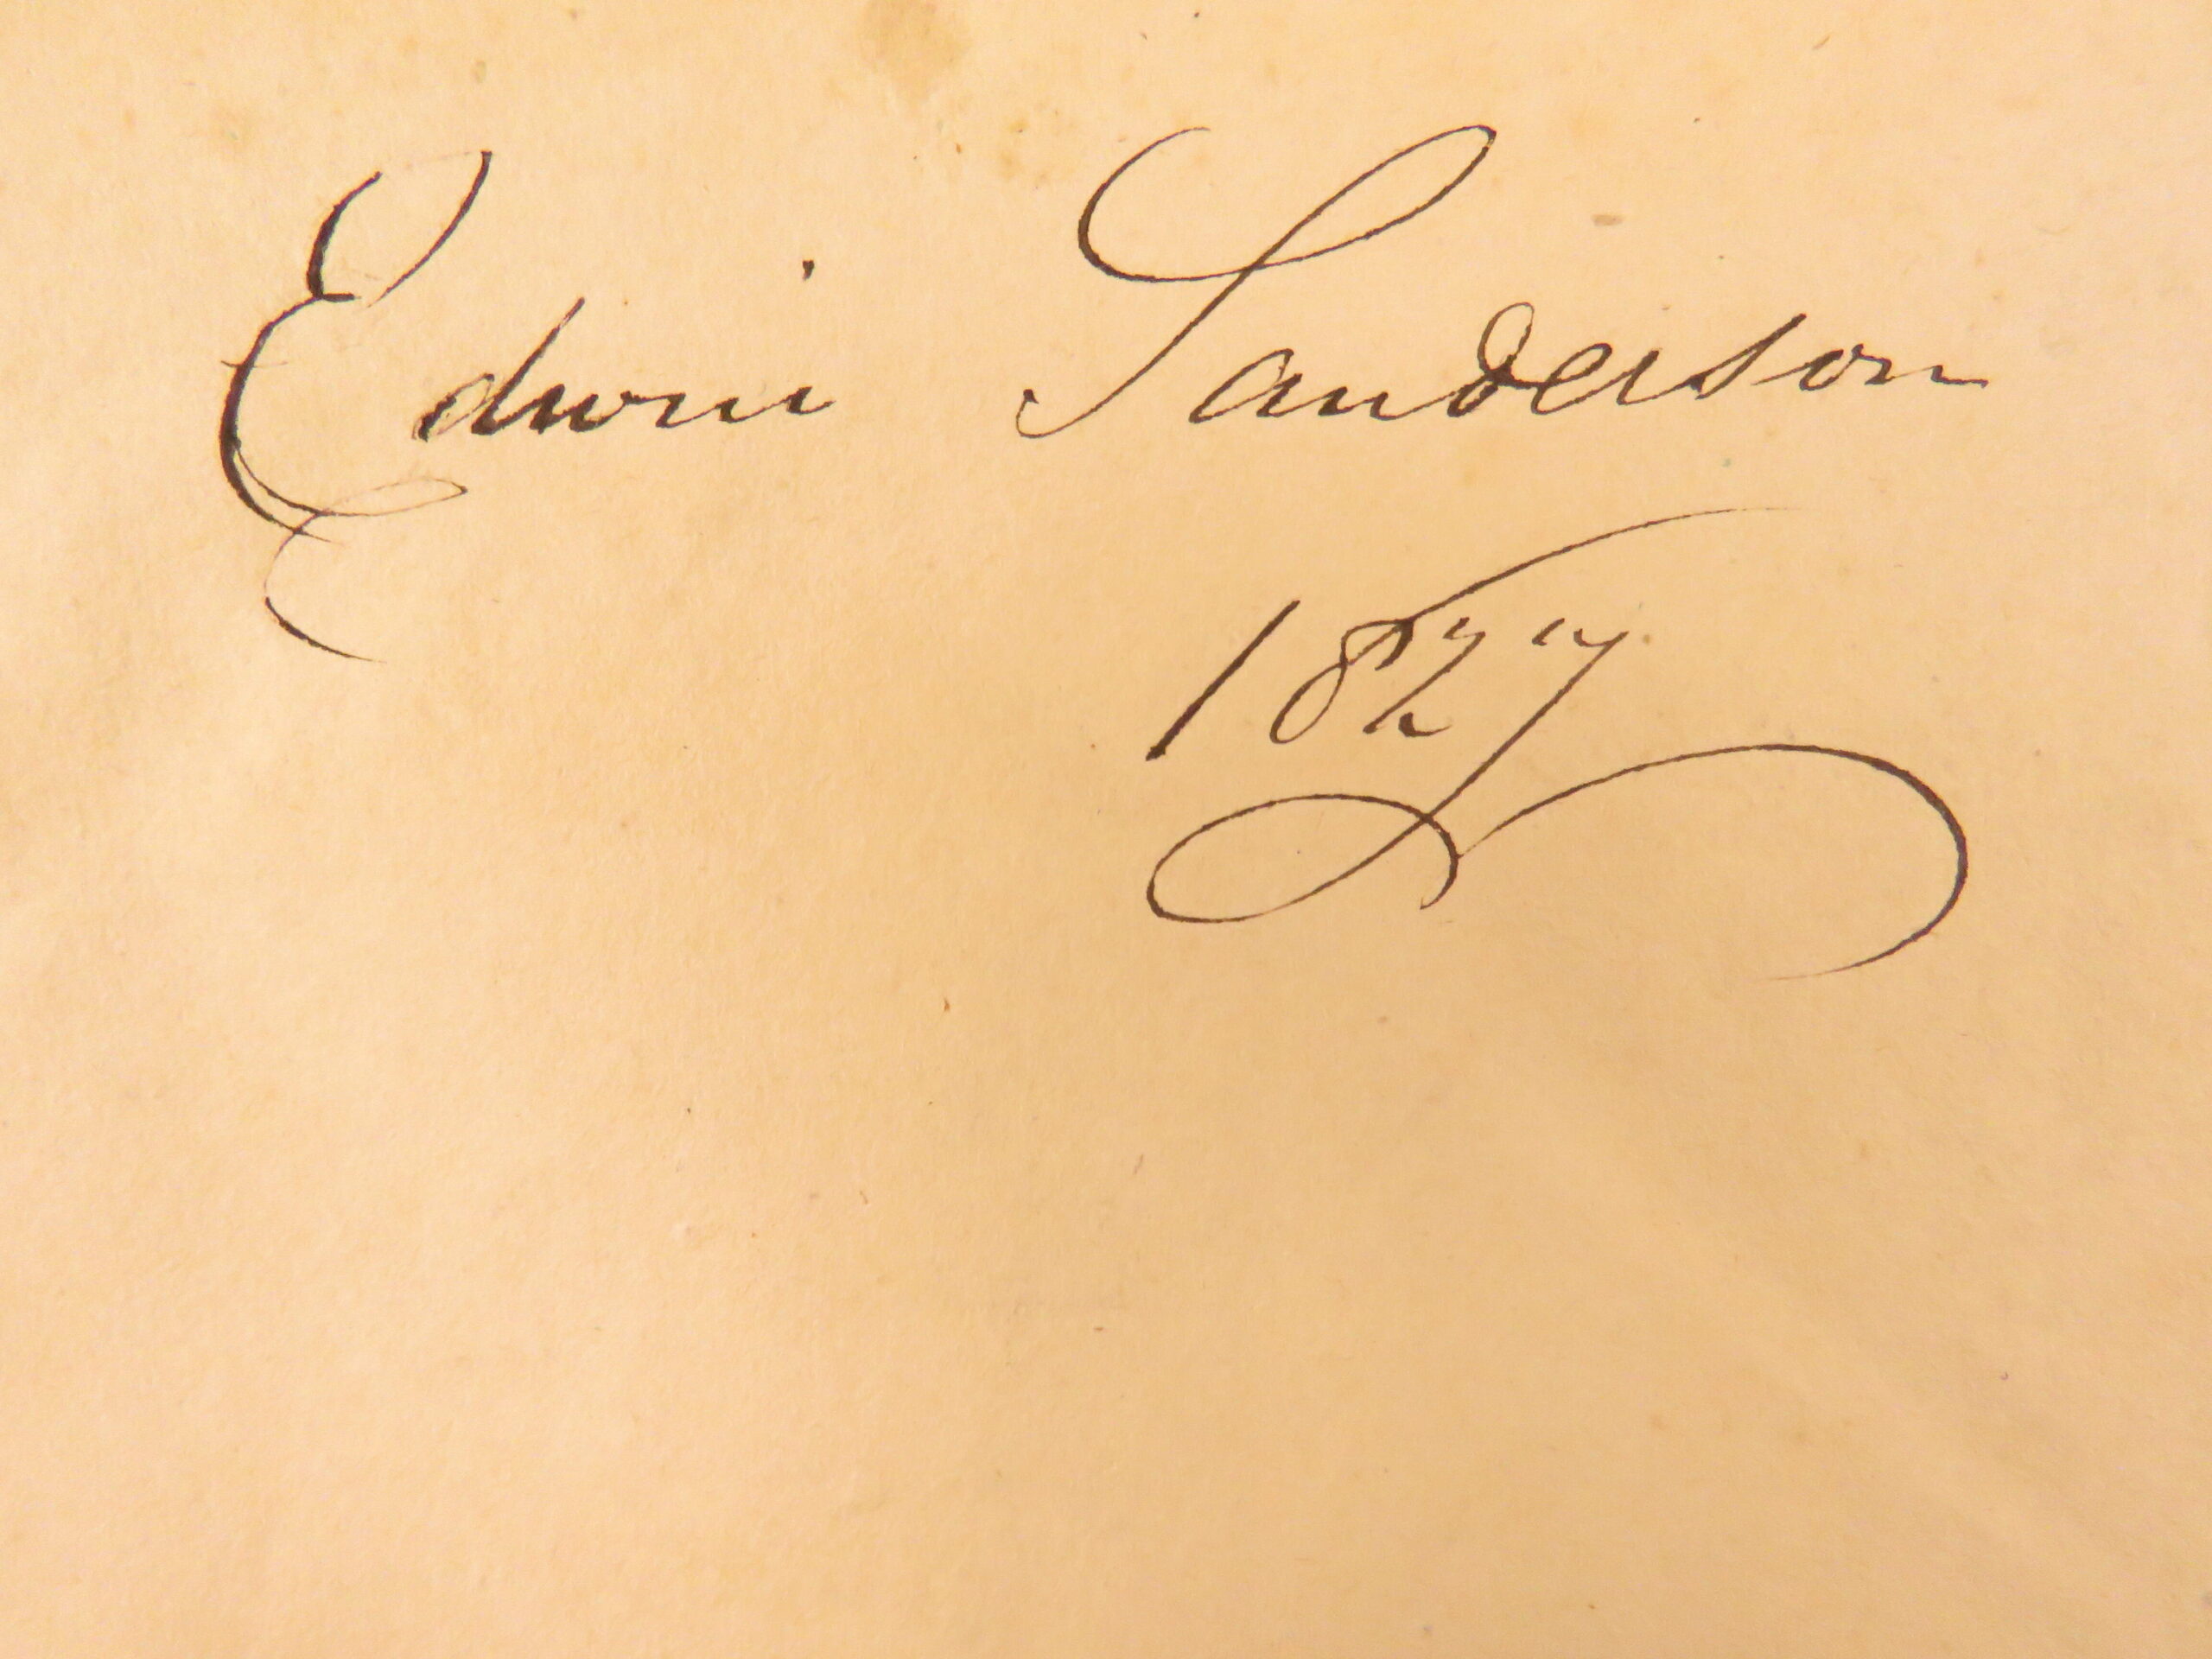 Edwin Sanderson
1827